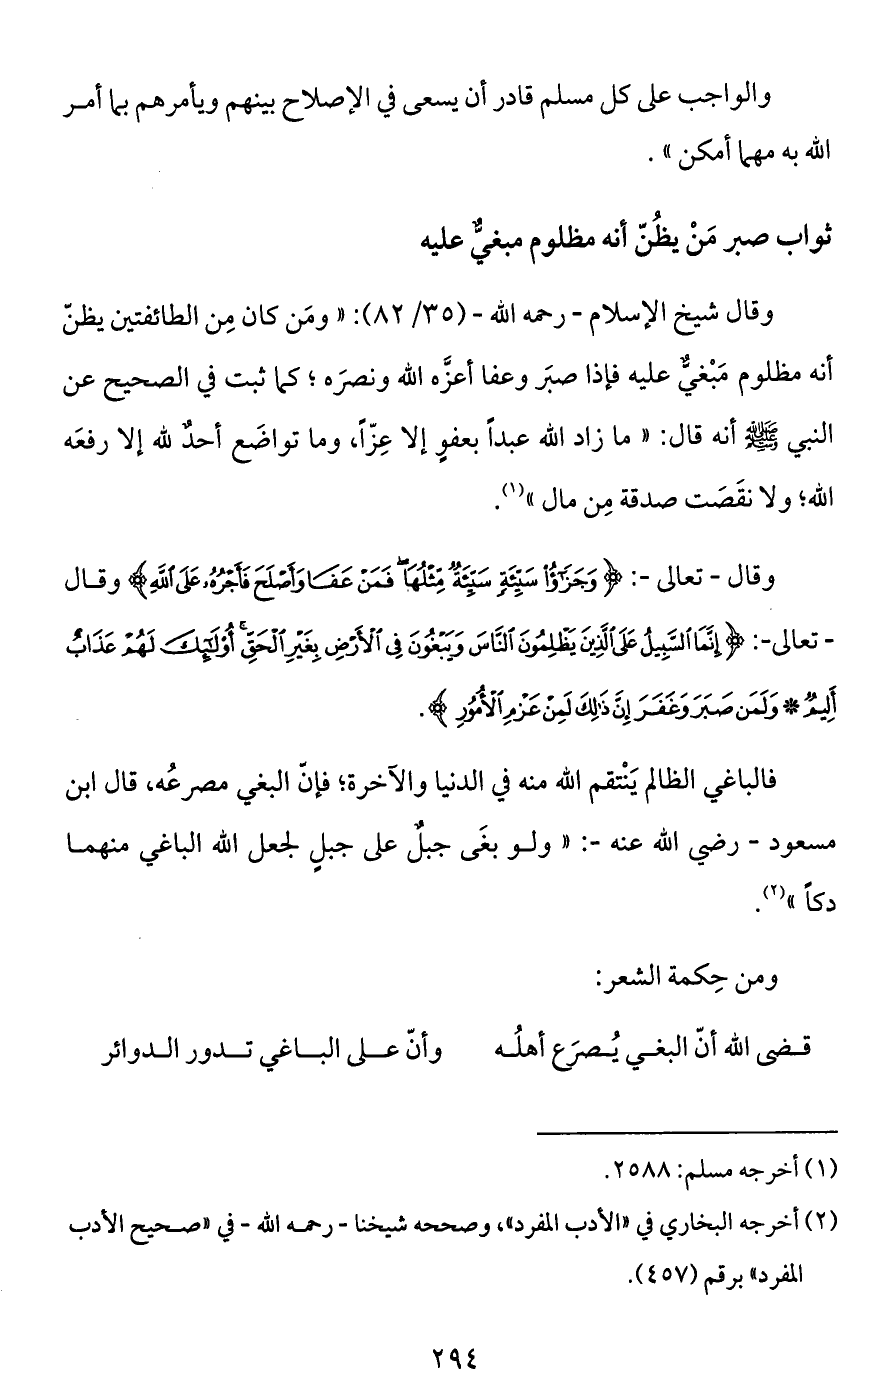 والواجب على كل مسلم قادر أن يسعى في الإصلاح بينهم ويأمرهم بما أمر
الله به مهما أمكن » .
ثواب صبر مَنْ يظُنّ أنه مظلوم مبغيٌّ عليه
وقال شيخ الإسلام - رحمه الله - (٣٥/ ٨٢): « ومَن كان مِن الطائفتين يظنّ
أنه مظلوم مَبْغيٌّ عليه فإذا صبَر وعفا أعزَّه الله ونصرَه ؛ كما ثبت في الصحيح عن
النبي ﷺ أنه قال: « ما زاد الله عبداً بعفوٍ إلا عِزّاً، وما تواضَع أحدٌ لله إلا رفعَه
الله؛ ولا نقَصَت صدقة مِن مال »(١).
وقال - تعالى -: ﴿ وَجَزَٰٓؤُاْ سَيِّئَةٖ سَيِّئَةٞ مِّثۡلُهَاۖ فَمَنۡ عَفَا وَأَصۡلَحَ فَأَجۡرُهُۥ عَلَى ٱللَّهِ ﴾ وقال
- تعالى-: ﴿ إِنَّمَا ٱلسَّبِيلُ عَلَى ٱلَّذِينَ يَظۡلِمُونَ ٱلنَّاسَ وَيَبۡغُونَ فِي ٱلۡأَرۡضِ بِغَيۡرِ ٱلۡحَقِّۚ أُوْلَٰٓئِكَ لَهُمۡ عَذَابٌ
أَلِيمٞ * وَلَمَن صَبَرَ وَغَفَرَ إِنَّ ذَٰلِكَ لَمِنۡ عَزۡمِ ٱلۡأُمُورِ ﴾ .
فالباغي الظالم يَنْتقم الله منه في الدنيا والآخرة؛ فإنّ البغي مصرعُه، قال ابن
مسعود - رضي الله عنه -: « ولو بغَى جبلٌ على جبلٍ لجعل الله الباغي منهما
دكاً »(٢).
ومن حِكمة الشعر:
قضى الله أنّ البغي يُصرَع أهلُه وأنّ على الباغي تدور الدوائر
(١) أخرجه مسلم: ٢٥٨٨.
(٢) أخرجه البخاري في «الأدب المفرد»، وصححه شيخنا - رحمه الله - في «صحيح الأدب
المفرد» برقم (٤٥٧).
٢٩٤